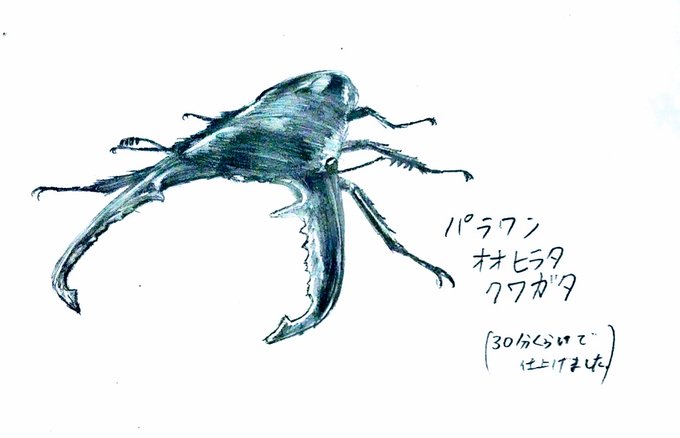 パラワン
オオヒラタ
クワガタ
(30分くらいで
仕上げました)